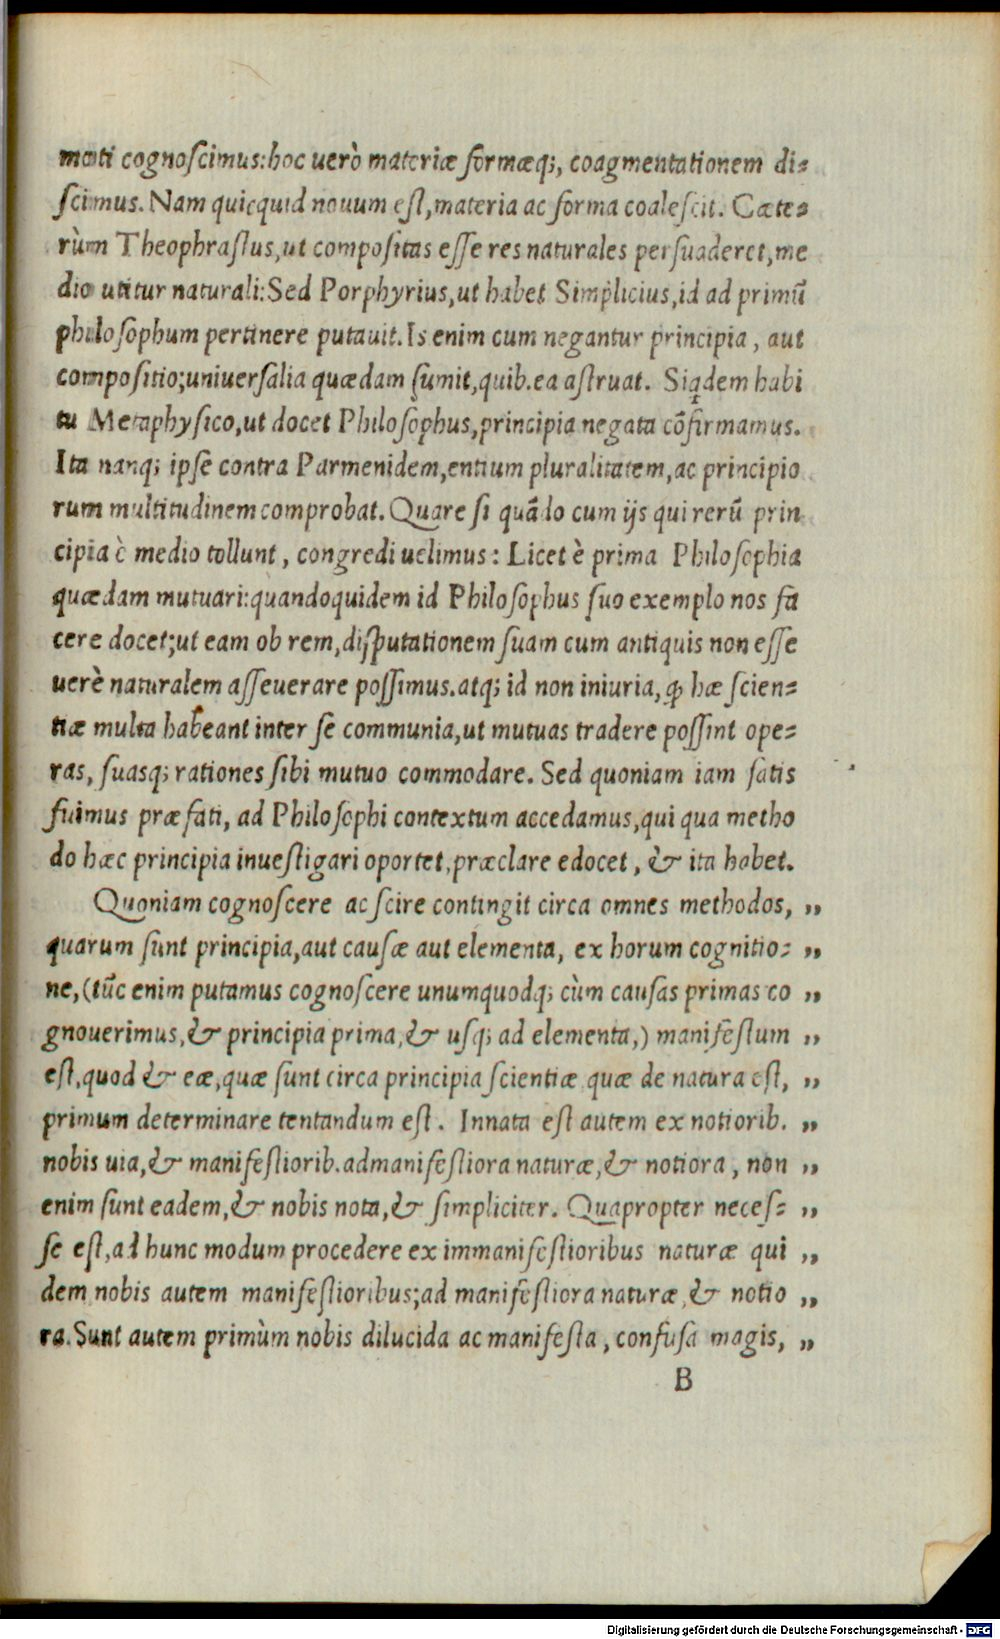 moti cognoſcimus:hoc uerò materiæ formæq́;, coagmentationem di-
ſcimus. Nam quicquid nouum eſt,materia ac forma coaleſcit. Cæte-
rùm Theophraſtus,ut compoſitas eſſe res naturales perſuaderet,me
dio utitur naturali:Sed Porphyrius,ut habet Simplicius,id ad primũ
philoſophum pertinere putauit. Is enim cum negantur principia, aut
compoſitio;uniuerſalia quædam ſumit,quib.ea aſtruat. Siqdem habi
tu Metaphyſico,ut docet Philoſophus,principia negata cõfirmamus.
Ita nanq; ipſe contra Parmenidem,entium pluralitatem,ac principio
rum multitudinem comprobat. Quare ſi quãdo cum ijs qui rerũ prin
cipia è medio tollunt, congredi uelimus: Licet è prima Philoſophia
quædam mutuari:quandoquidem id Philoſophus ſuo exemplo nos fa
cere docet;ut eam ob rem,diſputationem ſuam cum antiquis non eſſe
uerè naturalem aſſeuerare poſſimus.atq; id non iniuria, ꝙ hæ ſcien-
tiæ multa habeant inter ſe communia,ut mutuas tradere poſſint ope-
ras, ſuasq; rationes ſibi mutuo commodare. Sed quoniam iam ſatis
fuimus præfati, ad Philoſophi contextum accedamus,qui qua metho
do hæc principia inueſtigari oportet,præclare edocet, & ita habet.
Quoniam cognoſcere ac ſcire contingit circa omnes methodos, „
quarum ſunt principia,aut cauſæ aut elementa, ex horum cognitio- „
ne,(tũc enim putamus cognoſcere unumquodq; cùm cauſas primas co „
gnouerimus,& principia prima,& uſq; ad elementa,) manifeſtum „
eſt,quod & eæ,quæ ſunt circa principia ſcientiæ quæ de natura eſt, „
primum determinare tentandum eſt. Innata eſt autem ex notiorib. „
nobis uia,& manifeſtiorib.ad manifeſtiora naturæ,& notiora, non „
enim ſunt eadem,& nobis nota,& ſimpliciter. Quapropter neceſ- „
ſe eſt,ad hunc modum procedere ex immanifeſtioribus naturæ qui „
dem nobis autem manifeſtioribus;ad manifeſtiora naturæ,& notio „
ra.Sunt autem primùm nobis dilucida ac manifeſta, confuſa magis, „
B
Digitalisierung gefördert durch die Deutsche Forschungsgemeinschaft - DFG